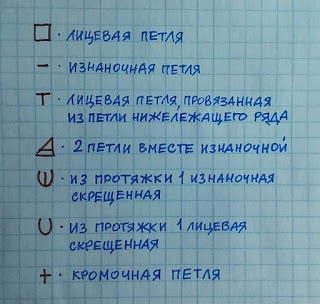 · ЛИЦЕВАЯ ПЕТЛЯ
- · ИЗНАНОЧНАЯ ПЕТЛЯ
Т · ЛИЦЕВАЯ ПЕТЛЯ, ПРОВЯЗАННАЯ
ИЗ ПЕТЛИ НИЖЕЛЕЖАЩЕГО РЯДА
· 2 ПЕТЛИ ВМЕСТЕ ИЗНАНОЧНОЙ
· ИЗ ПРОТЯЖКИ 1 ИЗНАНОЧНАЯ
СКРЕЩЕННАЯ
U · ИЗ ПРОТЯЖКИ 1 ЛИЦЕВАЯ
СКРЕЩЕННАЯ
+ · КРОМОЧНАЯ ПЕТЛЯ